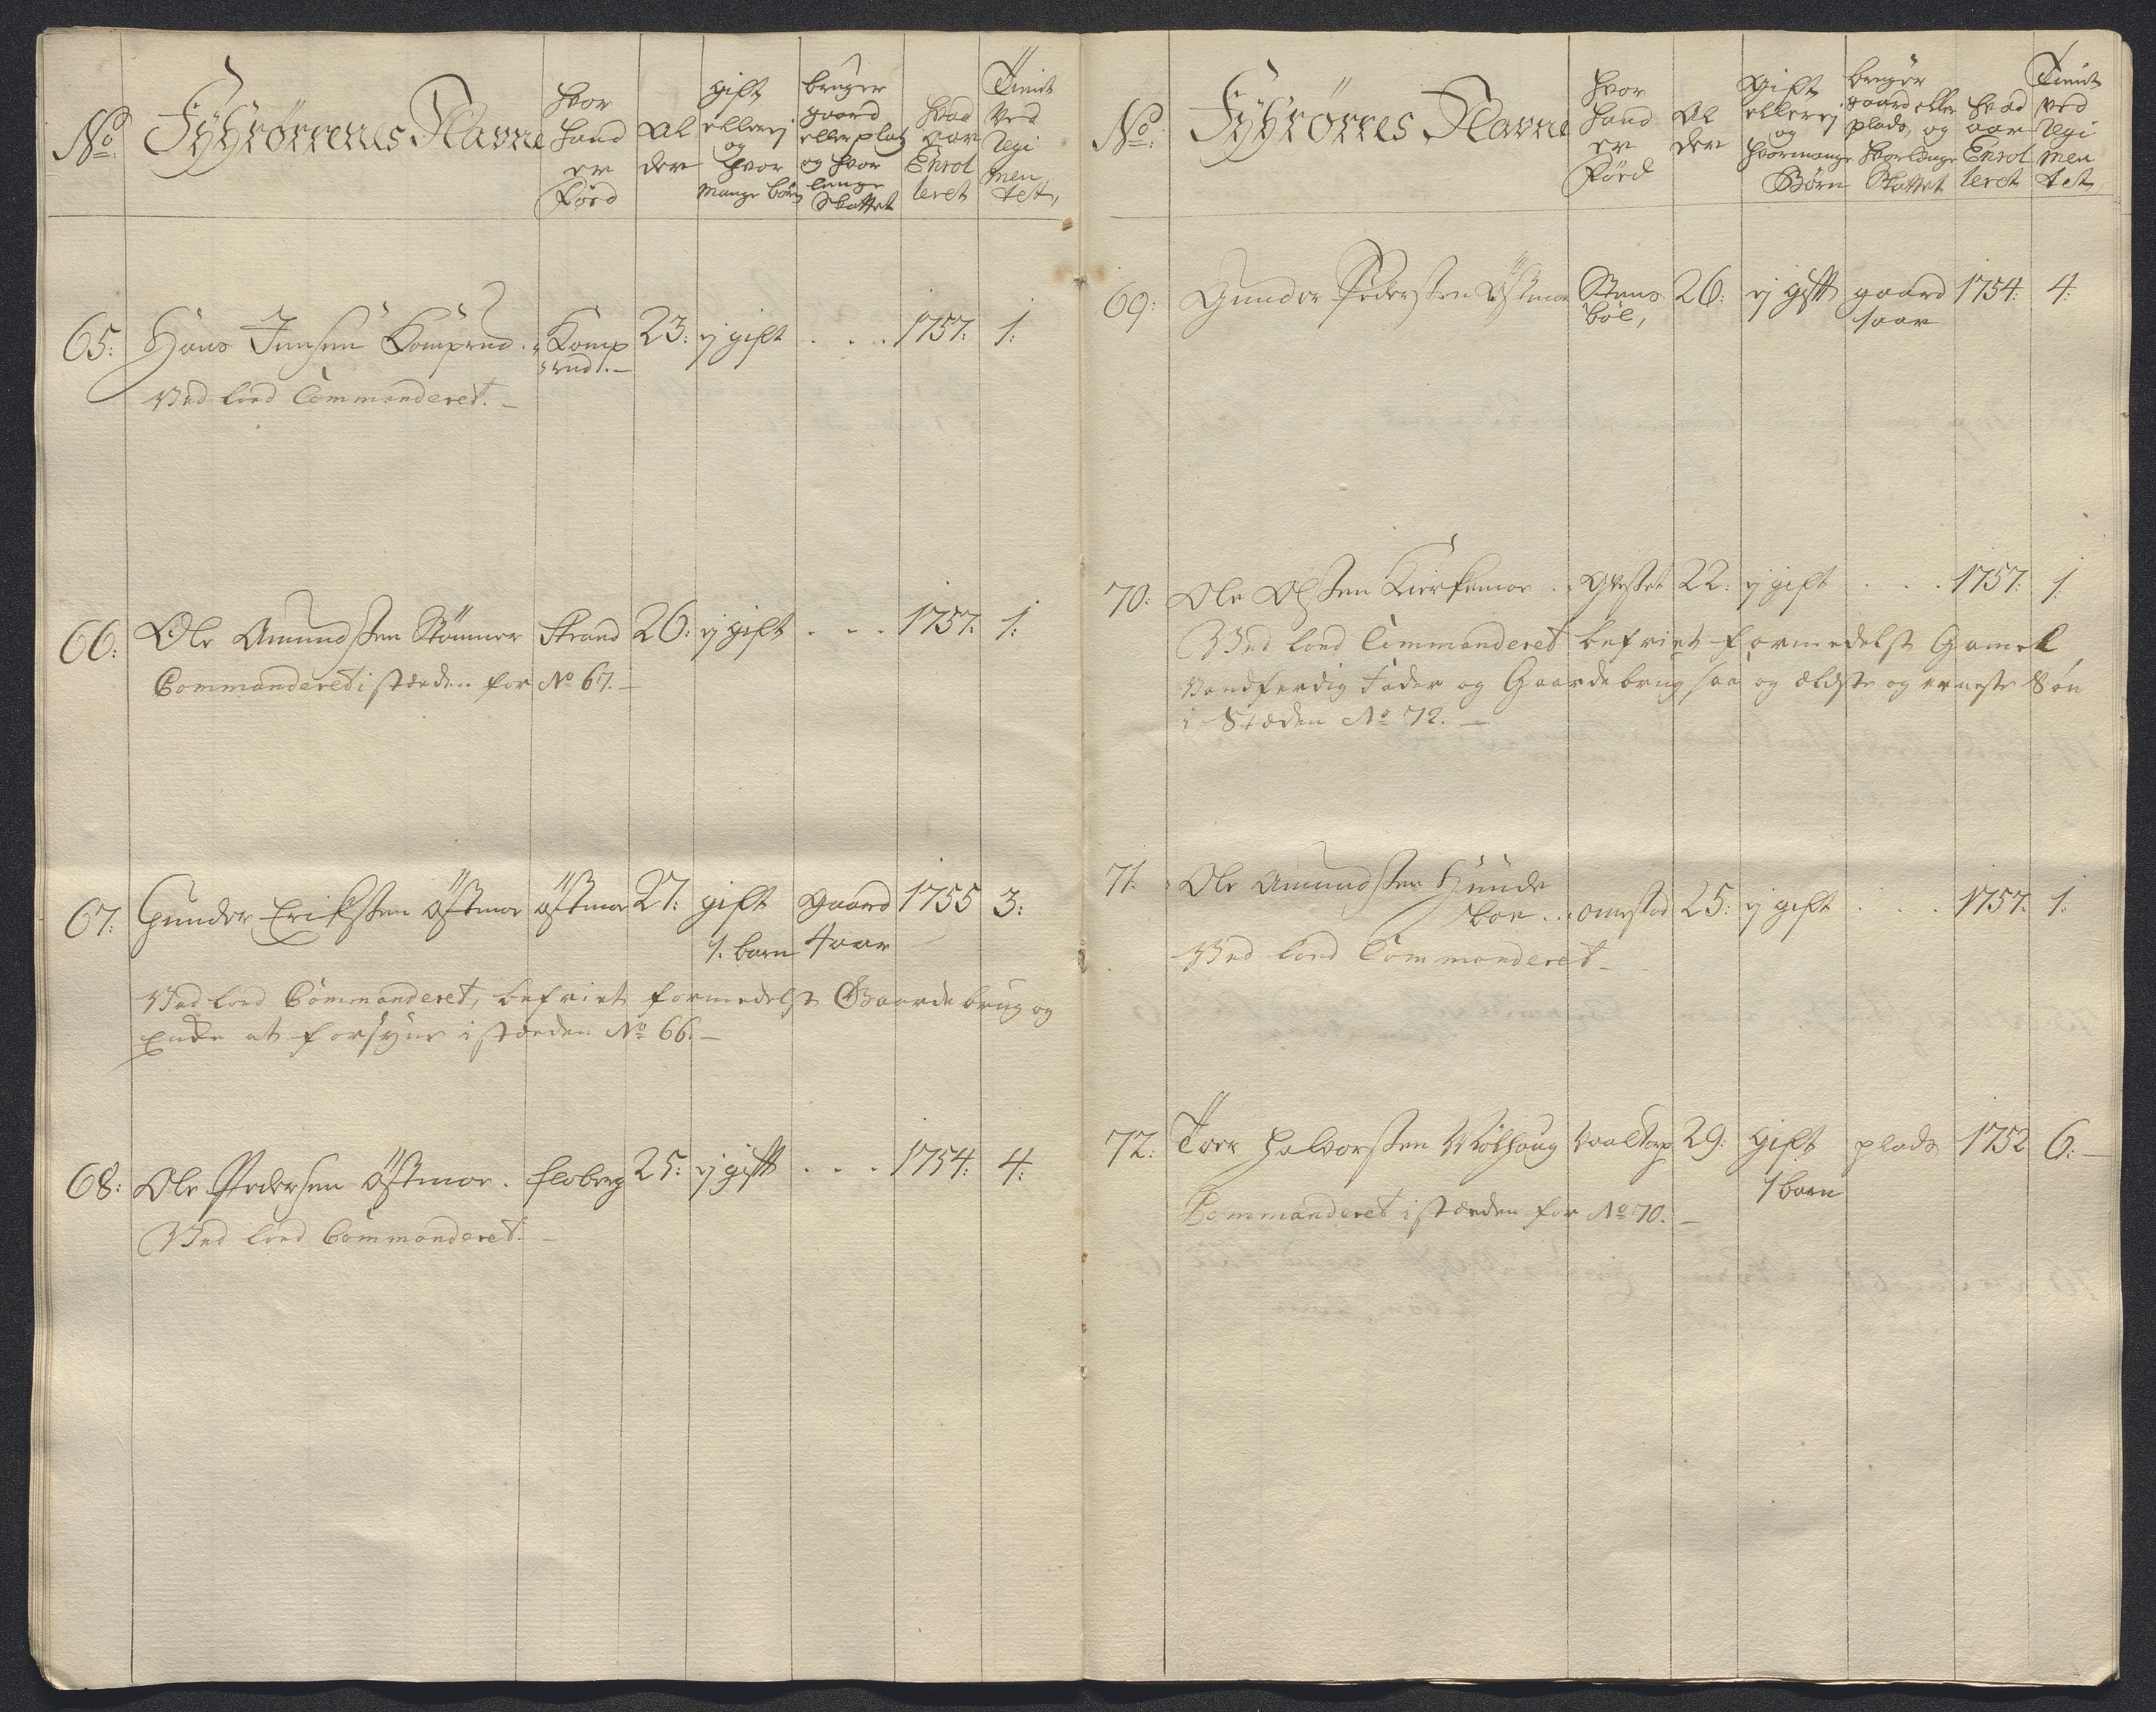 No: Fyhrørrenes Navne hvor hand er Født Alder gift eller ej og hvor mange børn bruger gaard eller plads og hvor lenge Skattet hvad aar Enrolleret Tient ved Regimentet,
65: Hans Jensen Komperud. Komperud. 23: ej gift . . . 1757: 1:
Med lord Commanderet.
66: Ole Amundsen Stømner Strand 26: ej gift . . . 1757: 1:
Commanderet i stæden for No 67.
67: Gunder Eriksen Østmoe østmoe 27: gift gaard 1755 3:
1. barn 4 aar
Med lord Commanderet, befriet formedelst Gaarde brug og
Encke at forsyne i stæden No 66.
68: Ole Pedersen Østmoe. floberg 25: ej gift . . . 1754: 4:
Med lord Commanderet.
No: Fyhrørres Navne hvor hand er Født Alder gift eller ej og hvormange Børn bruger gaard eller plads, og hvorlenge Skattet hvad aar Enrolleret Tient ved Regimentet,
69: Gunder Pedersen Østmoe Stens 26: ej gift gaard 1754: 4:
böl, 1 aar
70: Ole Olsen Kierkemoe . . 22: ej gift . . . 1757: 1:
Med lord Commanderet befriet formedelst Gamel
Vandferdig Fader og Gaarde brug saa og ældste og eneste Søn
i Stæden No 72.
71: Ole Amundsen Hunde
boe . . omestad 25: ej gift . . . 1757: 1:
Med lord Commanderet
72: Tore Halvorsen Mølhaug Vaaltorp 29: gift plads 1752 6:
1 barn
Commanderet i stæden for No 70.